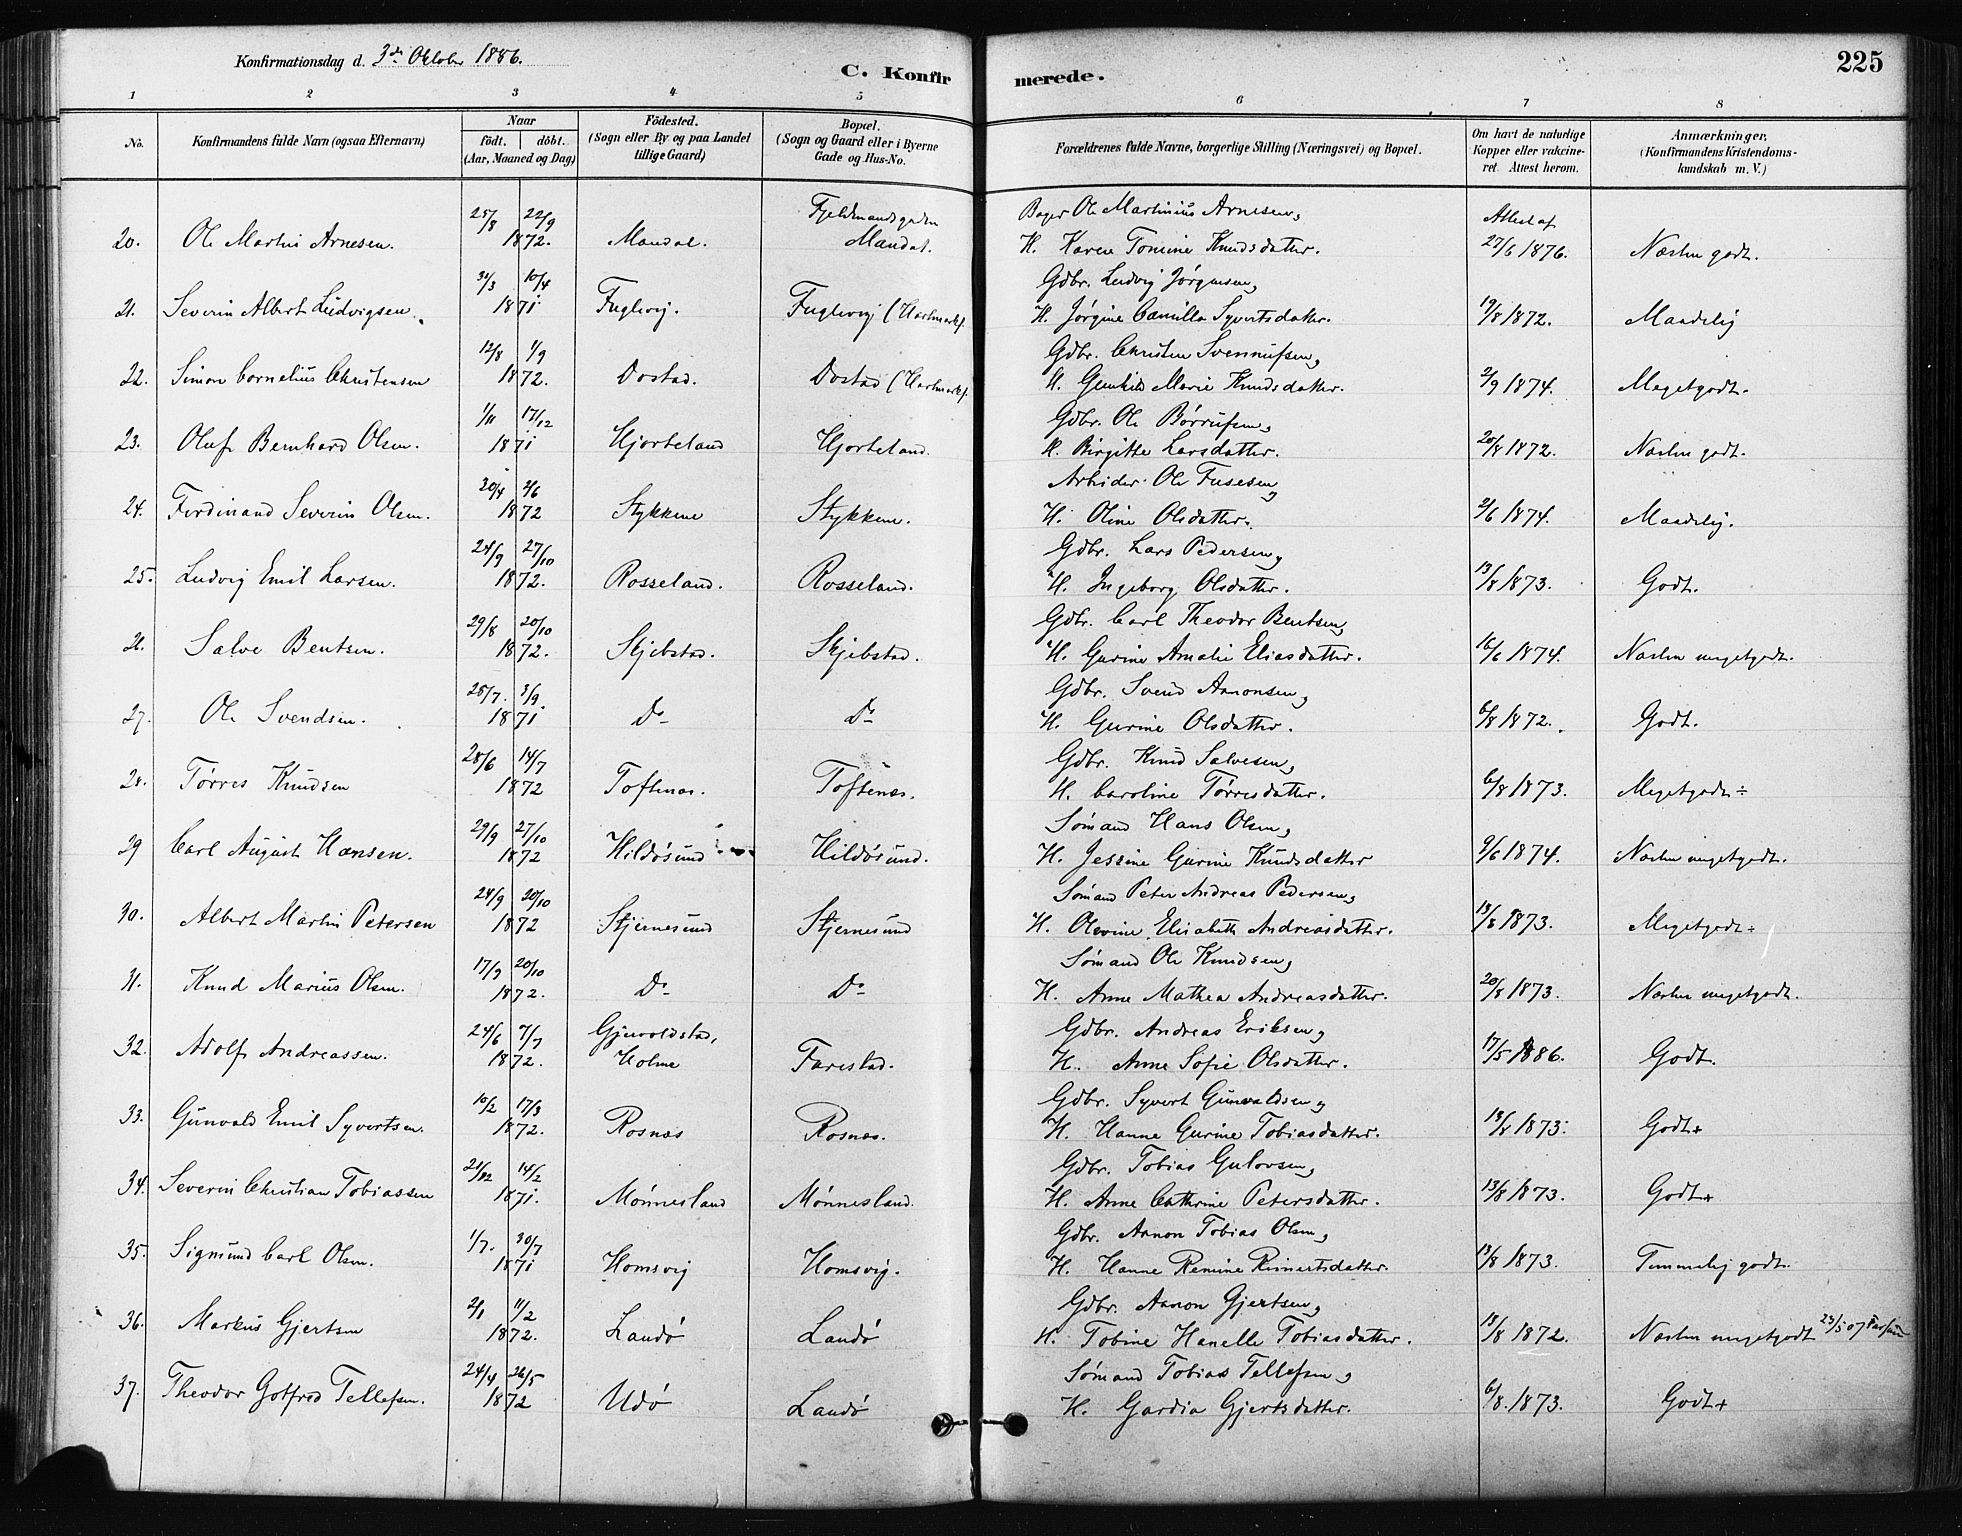 Konfirmationsdag d. 3de Oktober 1886.
C. Konfirmerede.
225
1 2 3 4 5 6 7 8
No.
Konfirmandens fulde Navn (ogsaa Efternavn)
Naar födt. döbt. (Aar, Maaned og Dag)
Födested. (Sogn eller By og paa Landet tillige Gaard)
Bopæl. (Sogn og Gaard eller i Byerne Gade og Hus-No.
Forældrenes fulde Navne, borgerlige Stilling (Næringsvei) og Bopæl.
Om havt de naturlige Kopper eller vakcineret. Attest herom.
Anmærkninger. (Konfirmandens Kristendomskundskab m. V.)
Fjeldmandsgaden Bager Ole Martinius Arnesen, Attest af
20. Ole Martin Arnesen. 25/8 22/9 1872. Mandal. Mandal. H. Karen Tomine Knudsdatter. 27/6 1876. Næsten godt.
Gdbr. Ludvig Jørgensen,
21. Severin Albert Ludvigsen. 31/3 10/4 1871 Fuglevig. Fuglevig (Harkmarks. H. Jørgine Camilla Syvertsdatter. 19/8 1872. Maadelig
Gdbr. Christen Svennufsen,
22. Simon Cornelius Christensen 12/8 1/9 1872. Dostad. Dostad (Harkmarks. H. Gunhild Marie Knudsdatter. 2/9 1874. Megetgodt.
Gdbr. Ole Børrufsen,
23. Oluf Bernhard Olsen. 1/11 17/12 1871 Hjorteland Hjorteland. H. Birgitte Larsdatter. 20/8 1872. Næsten godt.
Arbeider Ole Fusesen,
24. Ferdinand Severin Olsen. 20/4 2/6 1872 Stykkene Stykkene. H. Oline Olsdatter. 2/6 1874. Maadelig.
Gdbr. Lars Pedersen,
25. Ludvig Emil Larsen. 24/9 27/10 1872. Rosseland. Rosseland. H. Ingeborg Olsdatter. 13/8 1873. Godt.
Gdbr. Carl Theodor Bentsen,
26. Salve Bentsen. 29/8 20/10 1872. Skjebstad. Skjebstad. H. Gurine Amalie Eliasdatter. 16/6 1874. Næsten megetgodt.
Gdbr. Svend Aanonsen,
27. Ole Svendsen. 25/7. 3/9. 1871 Do Do H. Gurine Olsdatter. 6/8 1872. Godt.
Gdbr. Knud Salvesen,
28. Tørres Knudsen 28/6 14/7 1872 Toftenæs. Toftenæs. H. Caroline Tørresdatter. 6/8 1873. Megetgodt÷
Sømand Hans Olsen,
29 Carl August Hansen. 29/9 27/10 1872 Hildøsund Hildøsund. H. Jessine Gurine Knudsdatter 9/6 1874. Næsten megetgodt.
Sømand Peter Andreas Pedersen,
30. Albert Martin Petersen 24/9 20/10 1872 Stjernesund Stjernesund H. Olevine Elisabeth Andreasdatter. 13/8 1873. Megetgodt÷
Sømand Ole Knudsen,
31. Knud Marius Olsen. 17/9 20/10 1872. Do Do H. Anne Mathea Andreasdatter. 20/8 1873. Næsten megetgodt.
Gjervoldstad, Gdbr. Andreas Eriksen,
32. Adolf Andreassen. 24/6 7/7 1872. Holme Farestad. H. Anne Sofie Olsdatter. 17/5 1886. Godt.
Gdbr. Syvert Gunvaldsen,
33. Gunvald Emil Syvertsen. 10/2 17/3 1872. Rosnæs Rosnæs. H. Hanne Gurine Tobiasdatter. 13/8 1873. Godt+
Gdbr. Tobias Gulovsen,
34. Severin Christian Tobiassen 21/12 14/2 1871. Mønnesland Mønnesland. H. Anne Cathrine Petersdatter. 13/8 1873. Godt+
Gdbr. Aanon Tobias Olsen,
35. Sigmund Carl Olsen. 1/7. 30/7 1871 Homsvig Homsvig. H. Hanne Remine Reinertsdatter. 13/8 1873. Temmelig godt.
Gdbr. Aanon Gjertsen,
36. Markus Gjertsen 2/1 11/2 1872. Landø Landø H. Tobine Hanelle Tobiasdatter. 18/8 1872. Næsten megetgodt 23/5 07
Sømand Tobias Tellefsen,
37. Theodor Gotfred Tellefsen. 24/4 26/5 1872 Udø Landø H. Gardia Gjertsdatter. 6/8. 1873. Godt+